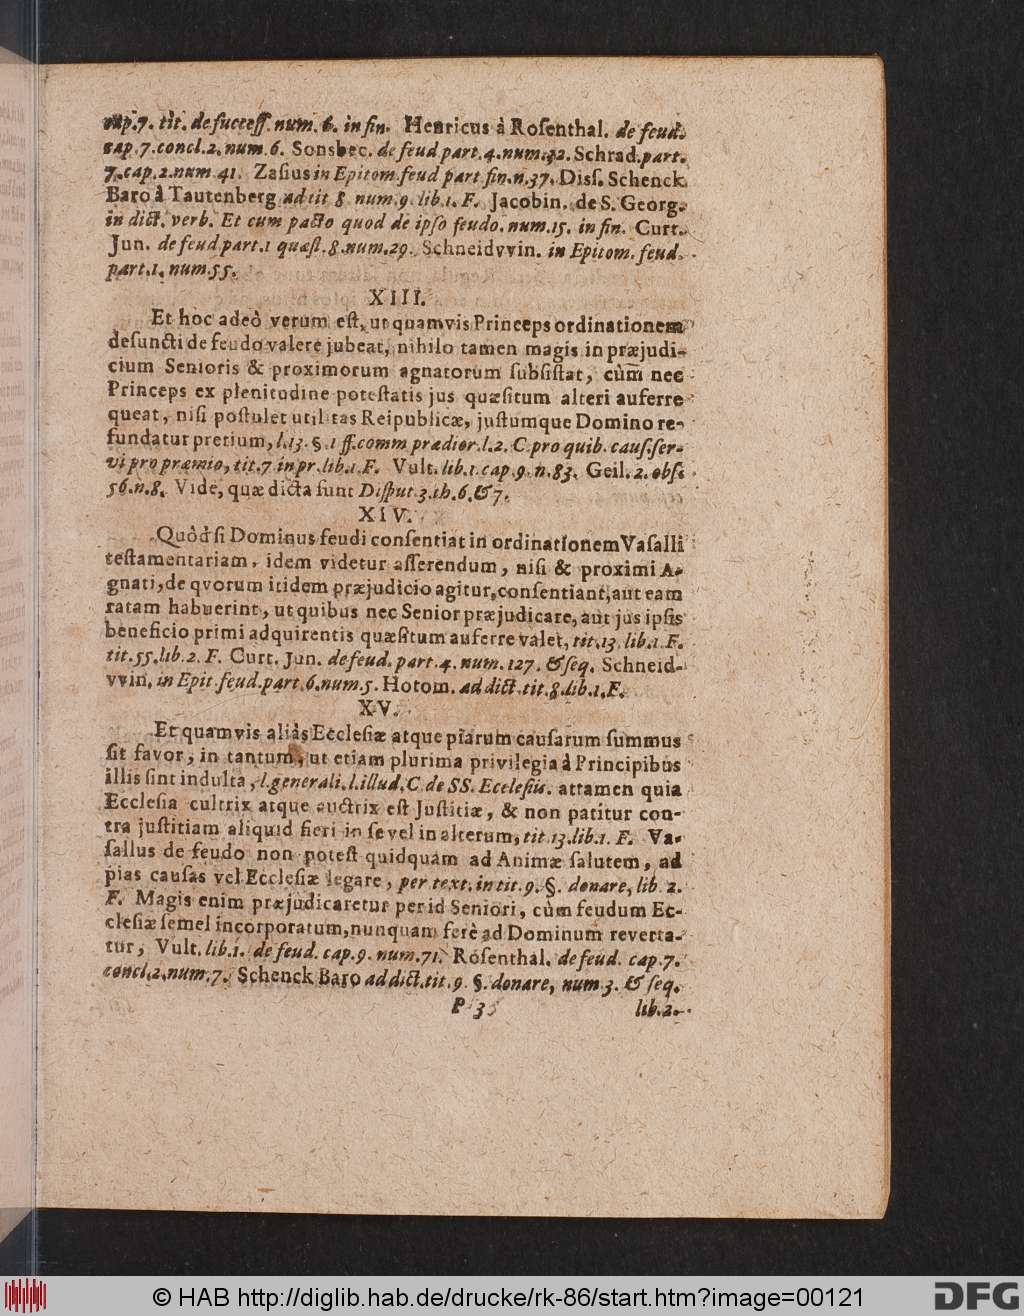 cap. 7. tit. de succeſſ. num. 6. in fin. Henricus à Roſenthal. de feud.
cap. 7. concl. 2. num. 6. Sonsbec. de feud part. 4. num. 32. Schrad. part.
7. cap. 2. num. 41. Zaſius in Epitom. feud part fin. n. 37. Diſſ. Schenck
Baro à Tautenberg ad tit 8. num. 9. lib. 1. F. Jacobin. de S. Georg.
in dict. verb. Et cum pacto quod de ipſo feudo. num. 15. in fin. Curt.
Jun. de feud part. 1 quæſt. 8. num. 29. Schneidvvin. in Epitom. feud.
part. 1. num. 55.
XIII.
Et hoc adeò verum eſt, ut quamvis Princeps ordinationem
defuncti de feudo valere jubeat, nihilo tamen magis in præjudi-
cium Senioris & proximorum agnatorum ſubſiſtat, cùm nec
Princeps ex plenitudine poteſtatis jus quæſitum alteri auferre
queat, niſi poſtulet utilitas Reipublicæ, juſtumque Domino re-
fundatur pretium, l. 13. §. 1 ff. comm prædior. l. 2. C. pro quib. cauſ. ſer-
vi pro præmio, tit. 7. in pr. lib. 1. F. Vult. lib. 1. cap. 9. n. 83. Geil. 2. obſ.
56. n. 8. Vide, quæ dicta ſunt Diſput. 3. th. 6. & 7.
XIV.
Quòd ſi Dominus feudi conſentiat in ordinationem Vaſalli
teſtamentariam, idem videtur aſſerendum, niſi & proximi A-
gnati, de qvorum itidem præjudicio agitur, conſentiant, aut eam
ratam habuerint, ut quibus nec Senior præjudicare, aut jus ipſis
beneficio primi adquirentis quæſitum auferre valet, tit. 13. lib. 1. F.
tit. 55. lib. 2. F. Curt. Jun. de feud. part. 4. num. 127. & ſeq. Schneid-
vvin. in Epit. feud. part. 6. num. 5. Hotom. ad dict. tit. 8. lib. 1. F.
XV.
Et quamvis aliàs Eccleſiæ atque piarum cauſarum ſummus
ſit favor, in tantum, ut etiam plurima privilegia à Principibus
illis ſint indulta, l. generali. l. illud. C. de SS. Eccleſiis. attamen quia
Eccleſia cultrix atque auctrix eſt Juſtitiæ, & non patitur con-
tra juſtitiam aliquid fieri in ſe vel in alterum, tit. 13. lib. 1. F. Va-
ſallus de feudo non poteſt quidquam ad Animæ ſalutem, ad
pias cauſas vel Eccleſiæ legare, per text. in tit. 9. §. donare, lib. 2.
F. Magis enim præjudicaretur per id Seniori, cùm feudum Ec-
cleſiæ ſemel incorporatum, nunquam ferè ad Dominum reverta-
tur, Vult. lib. 1. de feud. cap. 9. num. 71. Roſenthal. de feud. cap. 7.
concl. 2. num. 7. Schenck Baro ad dict. tit. 9. §. donare, num. 3. & ſeq.
P 3 lib. 2.
© HAB http://diglib.hab.de/drucke/rk-86/start.htm?image=00121
DFG